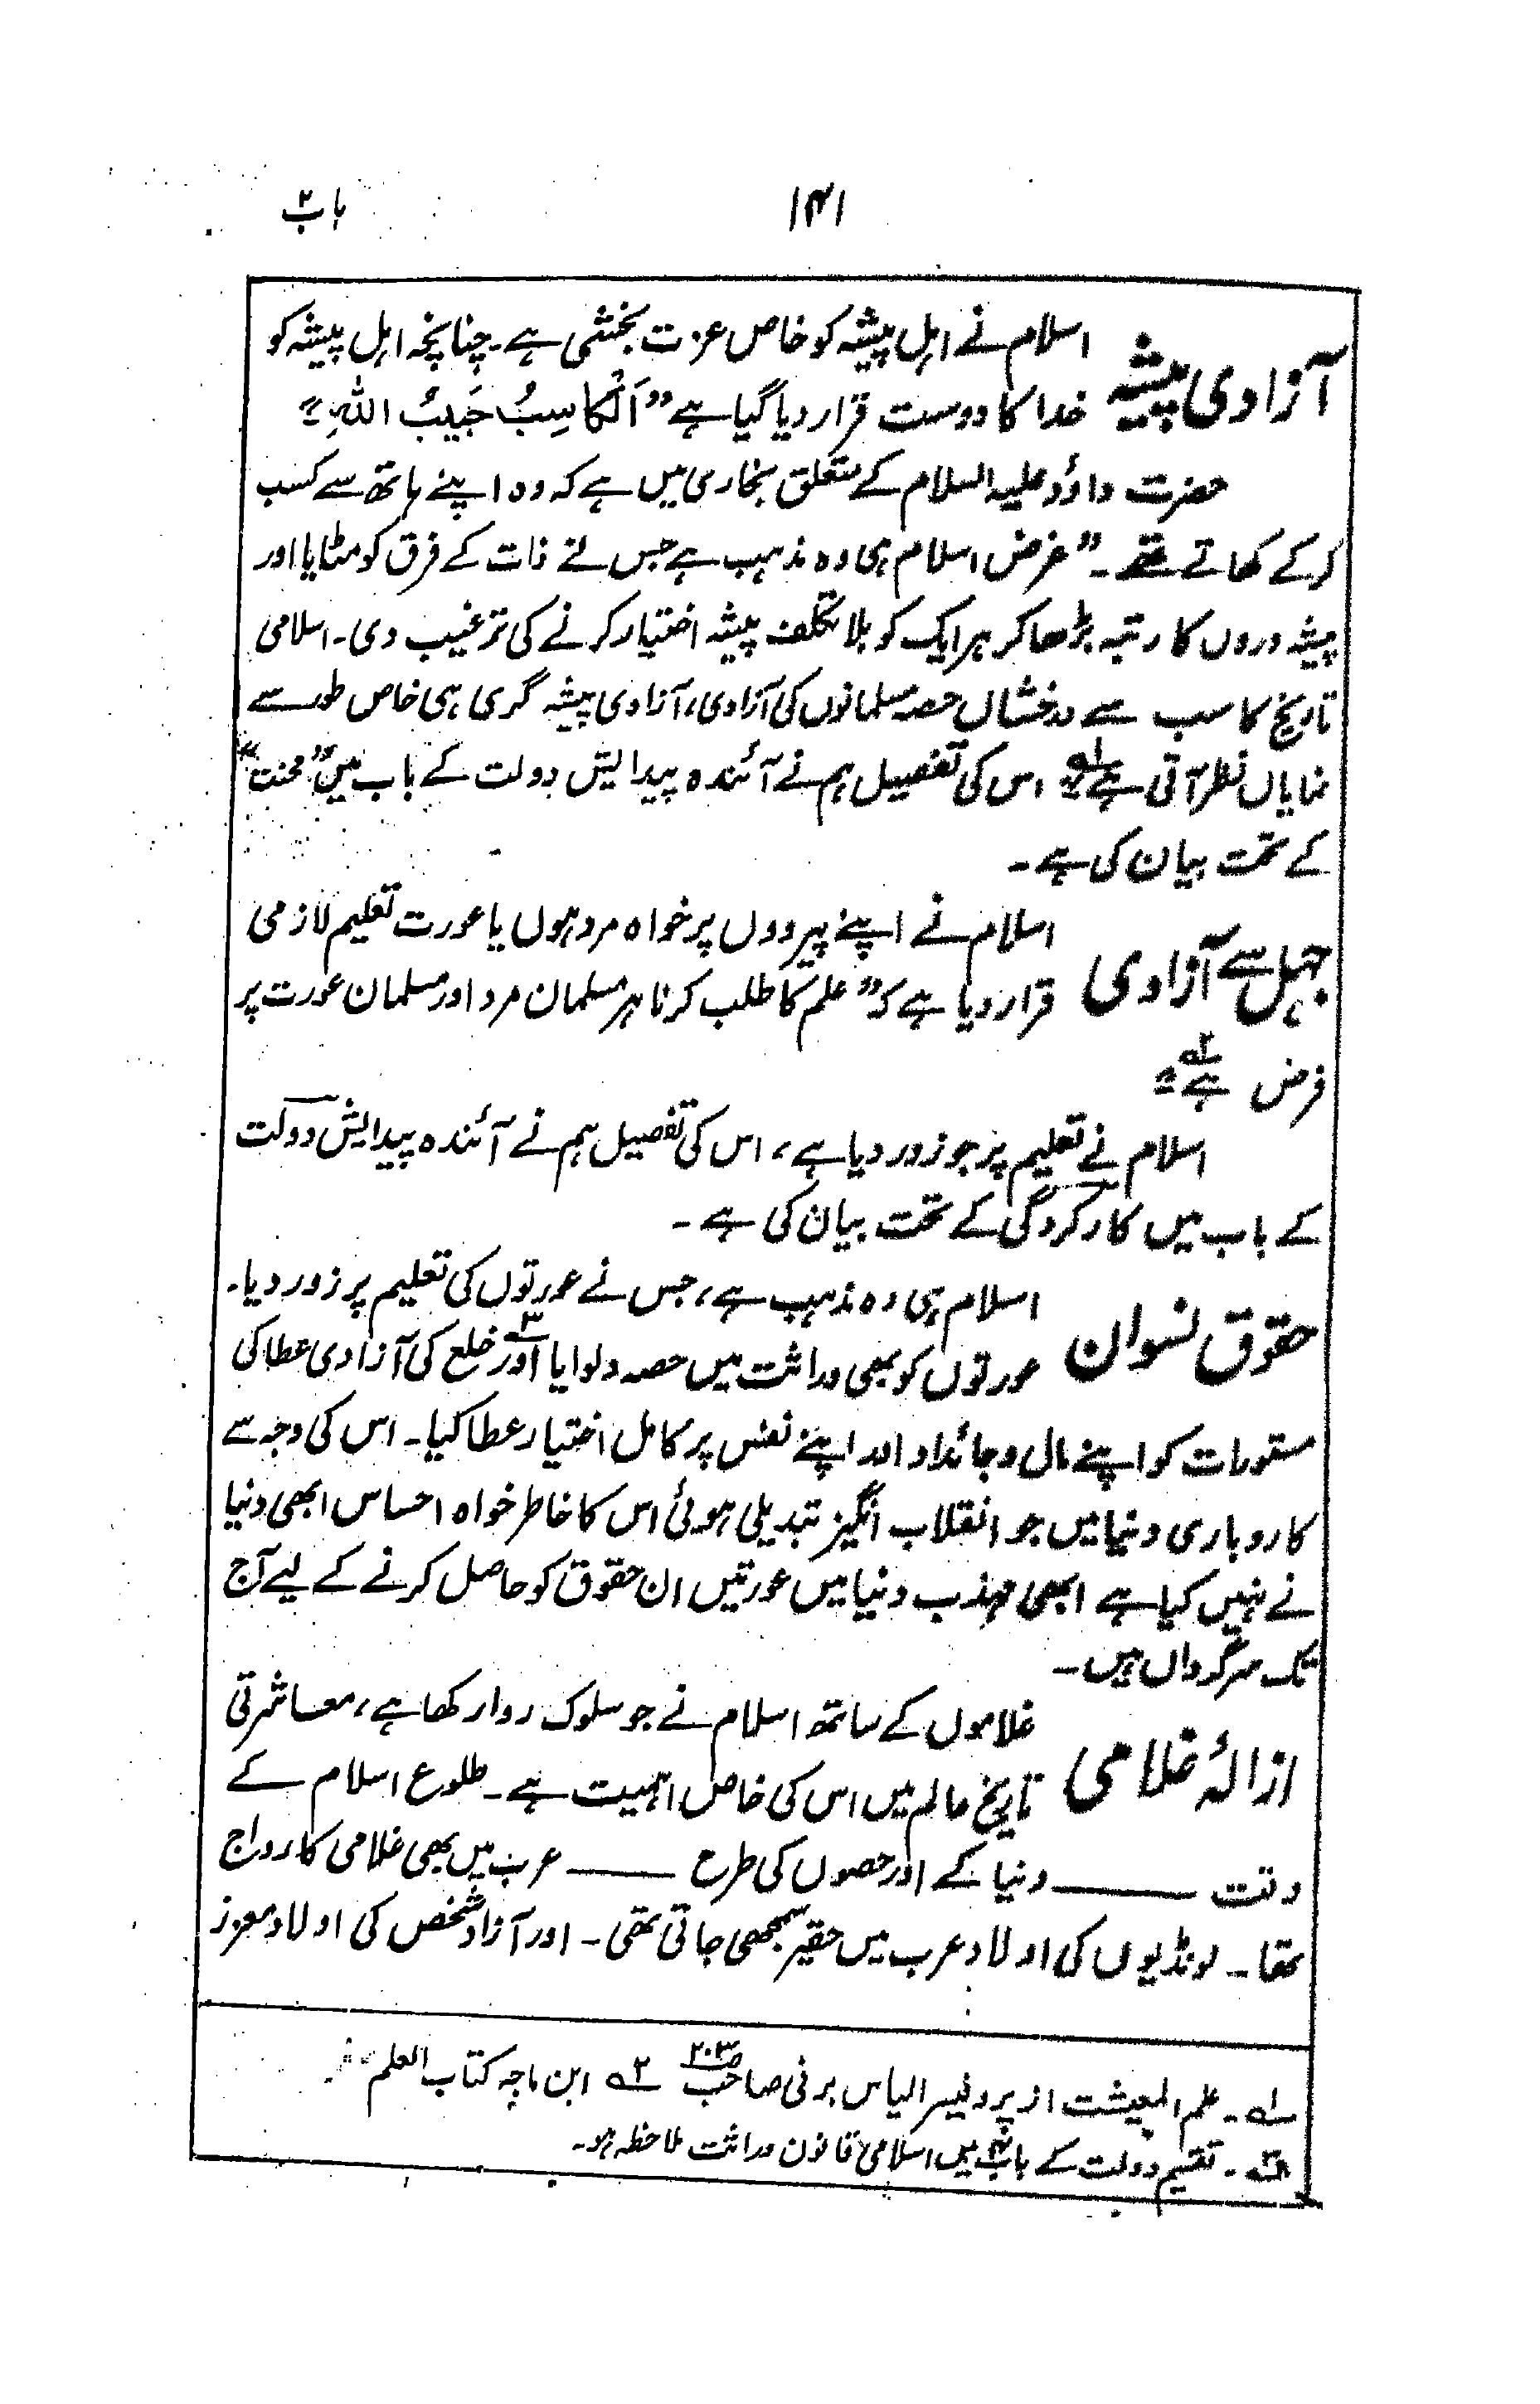 ۱۴۱
باب ۲
آزادی پیشہ
اسلام نے اہل پیشہ کو خاص عزت بخشی ہے۔ چنانچہ اہل پیشہ کو
خدا کا دوست قرار دیا گیا ہے "اَلْکَاسِبُ حَبِیْبُ اللّٰہِ"
حضرت داؤد علیہ السلام کے متعلق بخاری میں ہے کہ وہ اپنے ہاتھ سے کسب
کر کے کھاتے تھے۔" غرض اسلام ہی وہ مذہب ہے جس نے ذات کے فرق کو مٹایا اور
پیشہ وروں کا رتبہ بڑھا کر ہر ایک کو بلا تکلف پیشہ اختیار کرنے کی ترغیب دی۔ اسلامی
تاریخ کا سب سے درخشاں حصہ مسلمانوں کی آزادی، آزادی پیشہ گری ہی خاص طور سے
نمایاں نظر آتی ہے"۱؎ اس کی تفصیل ہم نے آئندہ پیدایش دولت کے باب میں "محنت"
کے تحت بیان کی ہے۔
جہل سے آزادی
اسلام نے اپنے پیرووں پر خواہ مرد ہوں یا عورت تعلیم لازمی
قرار دیا ہے کہ "علم کا طلب کرنا ہر مسلمان مرد اور مسلمان عورت پر
فرض ہے۲؎"
اسلام نے تعلیم پر جو زور دیا ہے، اس کی تفصیل ہم نے آئندہ پیدایش دولت
کے باب میں کارکردگی کے تحت بیان کی ہے۔
حقوق نسوان
اسلام ہی وہ مذہب ہے، جس نے عورتوں کی تعلیم پر زور دیا۔
عورتوں کو بھی وراثت میں حصہ دلوایا ۳؎ اور خلع کی آزادی عطا کی
مستورات کو اپنے مال و جائداد اور اپنے نفس پر کامل اختیار عطا کیا۔ اس کی وجہ سے
کاروباری دنیا میں جو انقلاب انگیز تبدیلی ہوئی اس کا خاطر خواہ احساس ابھی دنیا
نے نہیں کیا ہے ابھی مہذب دنیا میں عورتیں ان حقوق کو حاصل کرنے کے لیے آج
تک سرگرداں ہیں۔
ازالۂ غلامی
غلاموں کے ساتھ اسلام نے جو سلوک روا رکھا ہے، معاشرتی
تاریخ عالم میں اس کی خاص اہمیت ہے۔ طلوع اسلام کے
وقت ——— دنیا کے اور حصوں کی طرح ——— عرب میں بھی غلامی کا رواج
تھا۔ لونڈیوں کی اولاد عرب میں حقیر سمجھی جاتی تھی۔ اور آزاد شخص کی اولاد معزز
۱؎۔ علم المعیشت از پروفیسر الیاس برنی صاحب ص۲۰۳ ۲؎ ابن ماجہ کتاب العلم
۳؎۔ تقسیم دولت کے باب میں اسلامی قانون وراثت ملاحظہ ہو۔